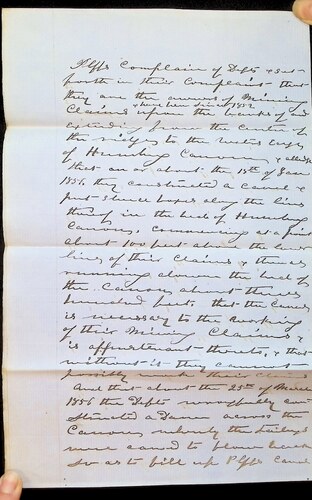 Plffs Complain of Defts & set
forth in their Complaint that
they are the owners of Mining
& have been since 1852
Claims upon the banks of and
extending from the centre of
the ridge to the waters edge
of Humbug Canon, & alledge
that on or about the 15th of Jan
1856 they constructed a Canal &
put Sluice boxes along the line
thereof in the bed of Humbug
Canon, commencing at a point
about 100 feet above the lower
lines of their claims & thence
running down the bed of
the Canon about three
hundred feet, that the Canal
is necessary to the working
of their Mining Claims, &
is appurtenant thereto, & that
without it they cannot
possibly work their claims
And that about the 25th of March
1856 the Defts wrongfully con
structed a Dam across the
Canon whereby the tailings
were caused to flow back
so as to fill up Plffs Canal